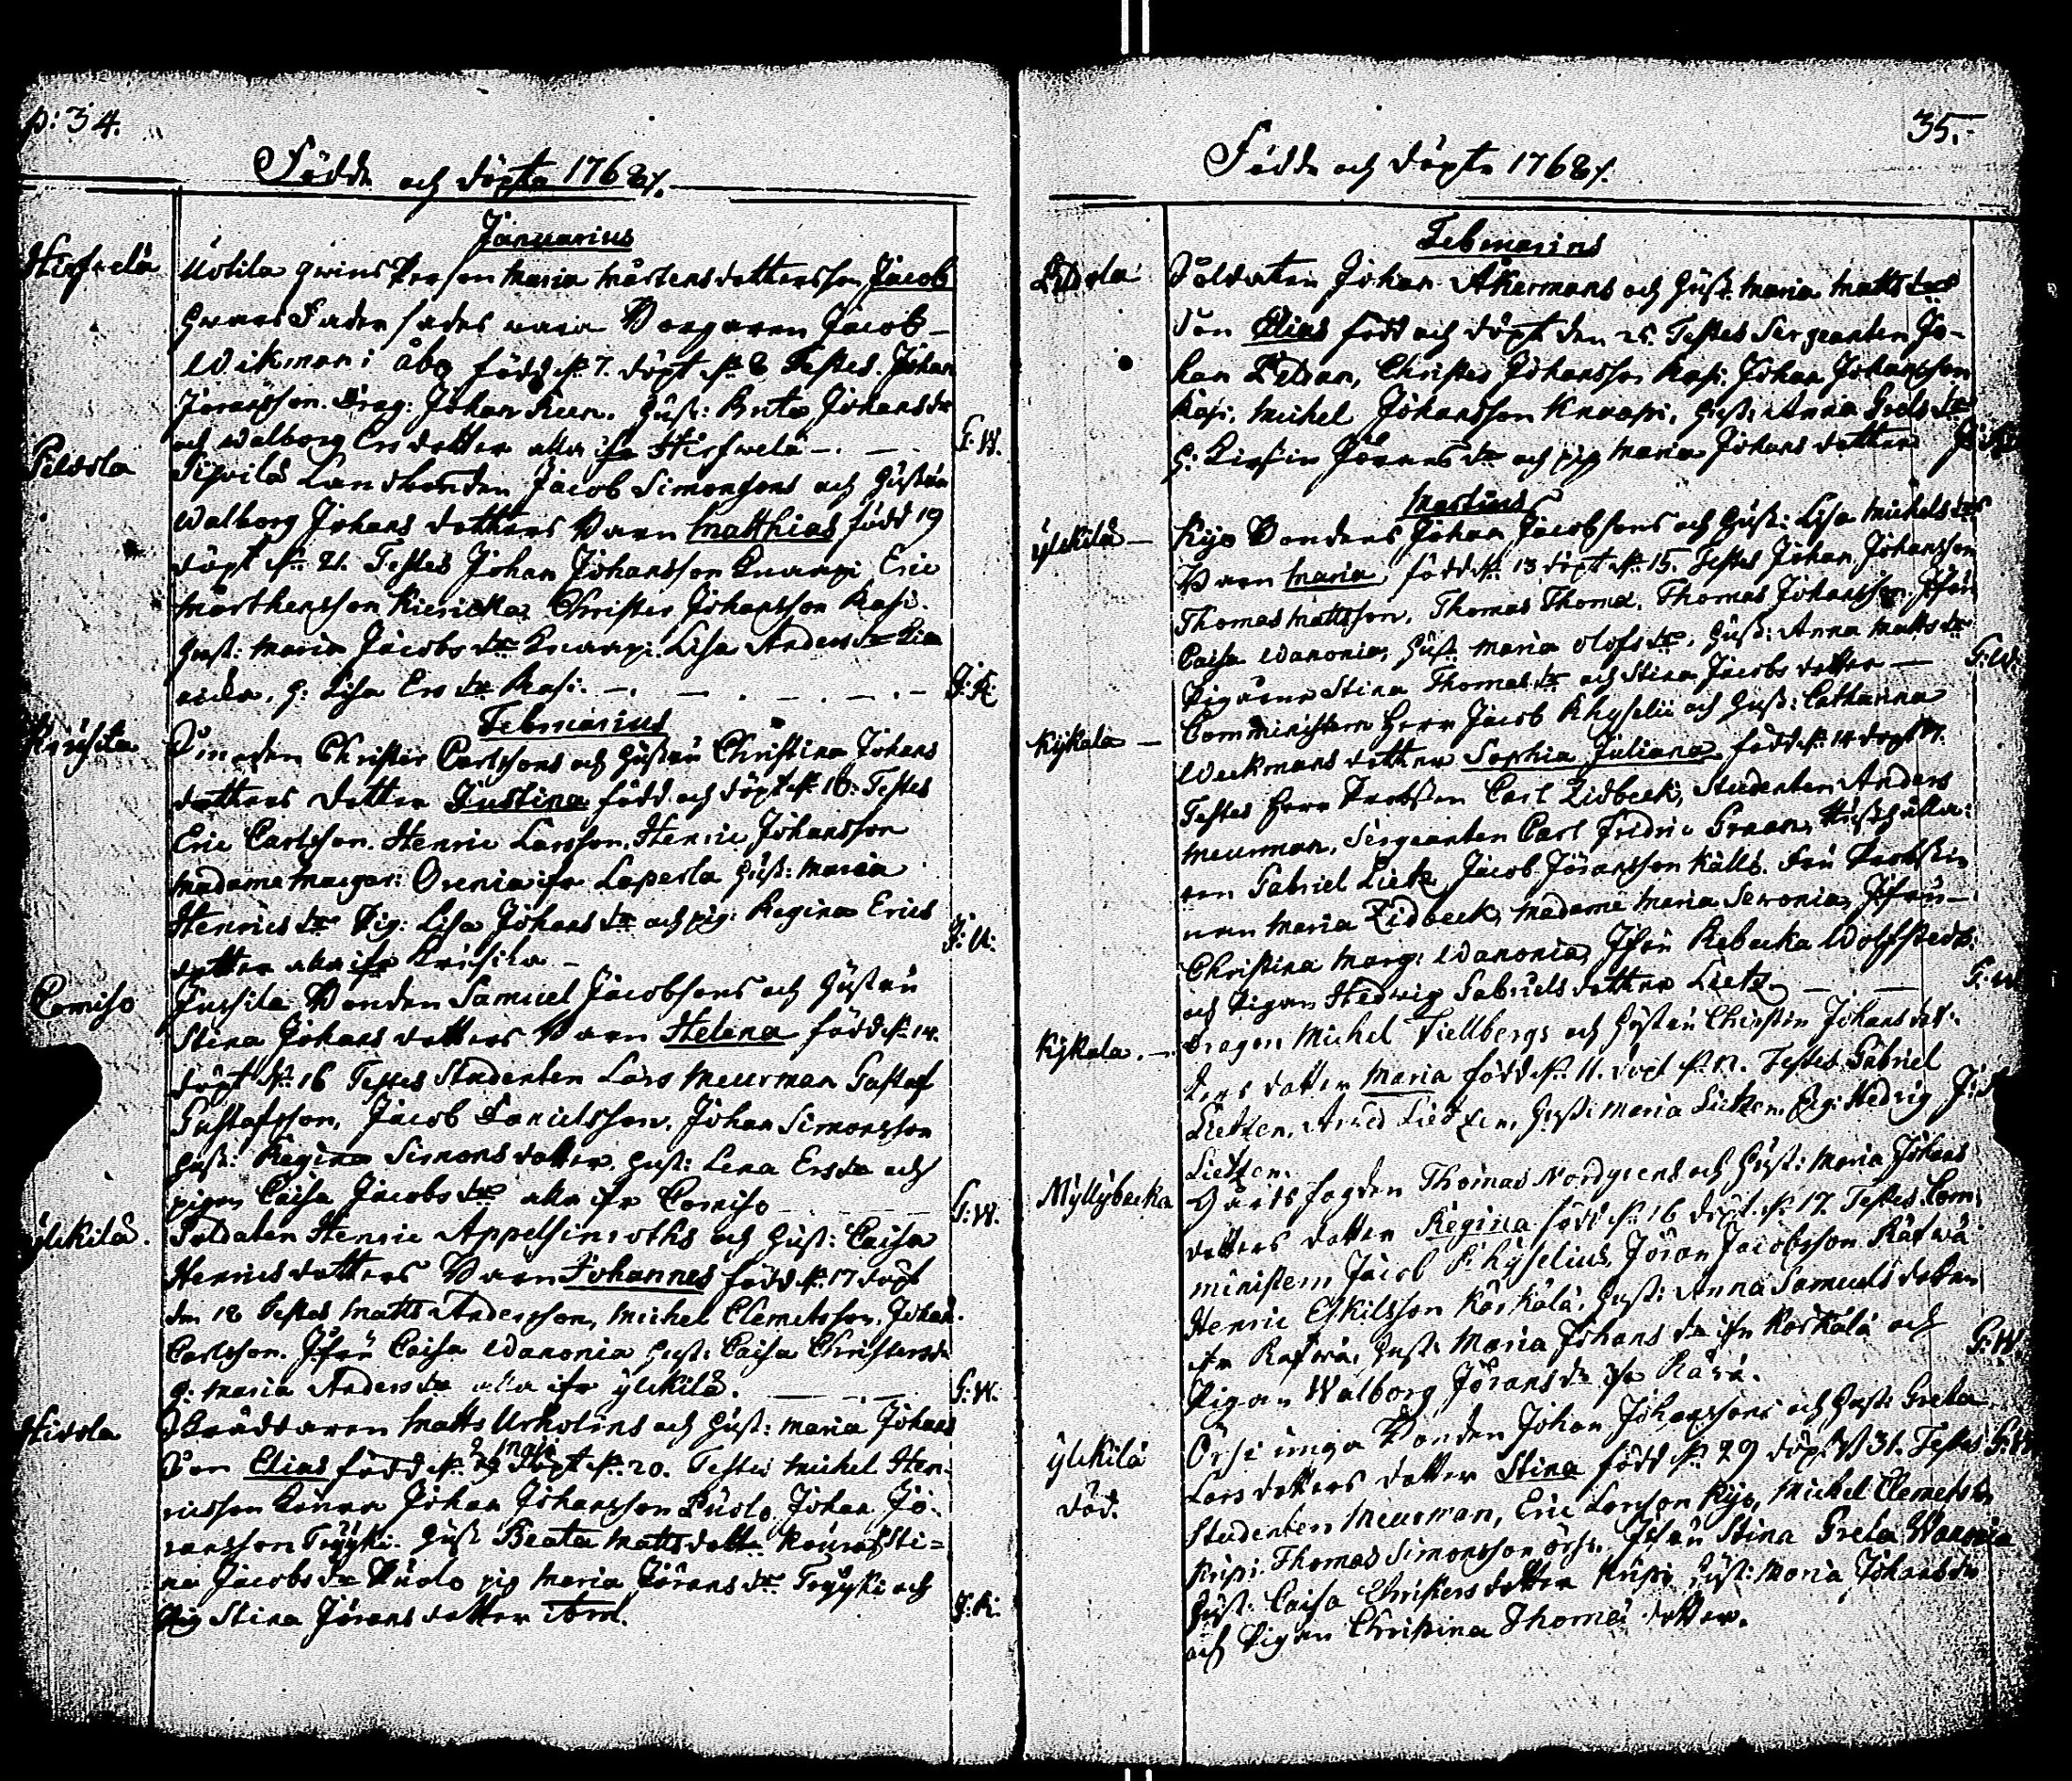 p: 34.
Födde och döpte 1768
Januarius
Hirfvelä
Uotila qwins Person Maria Mårtensdotters son Jacob
hvars Fader sades vara Borgaren Jacob
Wikman i Åbo född d. 7. döpt d. 8 Testes. Johan
Jöransson. Drag: Johan Keen. Hust: Brita Johansdr
och Walborg Ersdotter alla ifr Hirfwelä
G: W.
Peldola
Sipilä Landbonden Jacob Simonssons och Hustru
Walborg Johans dotters Barn Matthias född 19
döpt d. 21. Testes Johan Johansson Knaapi Eric
Mårthensson Kiericka, Christer Johansson Kasi.
Hust: Maria Jacobs dr Knaapi. Lisa Anders dr Kie
ricka. H: Lisa Ers dr Kasi.
J: K:
Februarius
Krusila
Smeden Christer Carlssons och Hustru Christina Johans
dotters dotter Justina född och döpt d. 16. Testes
Eric Carlsson. Henric Larsson. Henric Johansson
Madame Margar: Orenia ifr Laperla Hust: Maria
Henrics dr Pig: Lisa Johans dr och pig: Regina Erics
dotter alla ifr Krusila
Comiso
Jussila Bonden Samuel Jacobssons och Hustru
Stina Johans dotters Barn Helena född d. 14.
döpt d. 16 Testes Studenten Lars Meurman Gustaf
Gustafsson, Jacob Danielsson, Johan Simonsson
Hust: Regina Simons dotter. Hust: Lena Ersdr och
pigan Caisa Jacobs dr alla ifr Comiso
G: W.
ylikilä.
Soldaten Henric Appelsinroths och Hust: Caisa
Henricsdotters Barn Johannes född d. 17 döpt
den 18 Testes Matts Andersson, Michel Clemetsson. Johan
Carlsson. Jfru Caisa Wanonia Hust: Caisa Christersdr
H: Maria Andersdr alla ifr ylikilä.
G: W.
Skräddaren Matts Urholins och Hust: Maria Johans
Son Elias född d. döpt d. 20. Testes Michel Hen-
ricsson Johan Johansson Puolo Johan Jö-
ransson Tryyki. Hust Beata Mattsdottr Sti=
na Jacobsdr Puolo pig Maria Jörans dr. Tryyki och
Pig Stina Jörans dotter
J: K:
35.
Födde och döpte 1768
Februarius
Soldaten Johan Åkermans och Hust. Maria Matts drs
Son Elias född och döpt den 25. Testes Sergeanten Jo-
han Christer Johansson Kasi. Johan Johansson
Kasi. Michel Johansson Knaapi, Hust: Anna Grels dr
H: Kirstin Jörans dr och pig Maria Johans dotter
Martius
ylikilä
Kyö Bondens Johan Jacobssons och Hust: Lisa Michels drs
Barn Maria född d. 13 döpt d. 15. Testes Johan Johansson
Thomas Mattsson, Thomas Thomæ. Thomas Johansson. Jfru
Caisa Wanonia, Hust: Maria Olofs dr, Hust: Anna Matts dr
Pigorna Stina Thomas dr och Stina Jacobs dotter
G: W:
Kijkala
Comministern Herr Jacob Rhyselii och Hust: Catharina
Weckmans dotter Sophia Juliana född d. 14 döpt
Testes Herr Probsten Carl Lidbeck, Studenten Anders
Meurman, Sergeanten Carl Fredric Graan,
ren Gabriel Lietz Jacob Jöransson Källs. Fru Probstin
nan Maria Lidbeck, Madame Maria Seronia, Jfrun
Christina Marg: Wanonia, Jfru Rebecka
och Pigan Hedwig Gabriels dotter Lietz.
G: W
Kijkala.
Dragon Michel Fiellbergs och Hustru Christin Johans dot-
ters dotter Maria född d. 11. döpt d. 17. Testes Gabriel
Lietzen, Arfved Lietzen, Hust: Maria Lietzen. Pig: Hedvig
Lietzen.
Myllybacka
Thomas Nordgrens och Hust: Maria Johans
dotters dotter Regina född d. 16 döpt d. 17. Testes Com-
ministern Jacob Rhyselius, Jöran Jacobsson Rafwa
Henric Eskilsson Karkala, Hust: Anna Samuels dotter
ifr Rafwa, Hust. Maria Johans dr ifr Karkala och
Pigan Walborg Jörans dr ifr
G: W.
ylikilä
död.
Örsi unga Bonden Johan Johanssons och Hust: Greta
Lars dotters dotter Stina född d. 29 döpt d. 31. Testes
Studenten Meurman, Eric Larsson Kyö, Michel Clemetss.
Krupi. Thomas Simonsson Örsi. Jfru Stina Greta Wanonia
Hust. Caisa Christers dotter Krupi Hust: Maria Johans dr
och Pigan Christina Thomæ dotter.